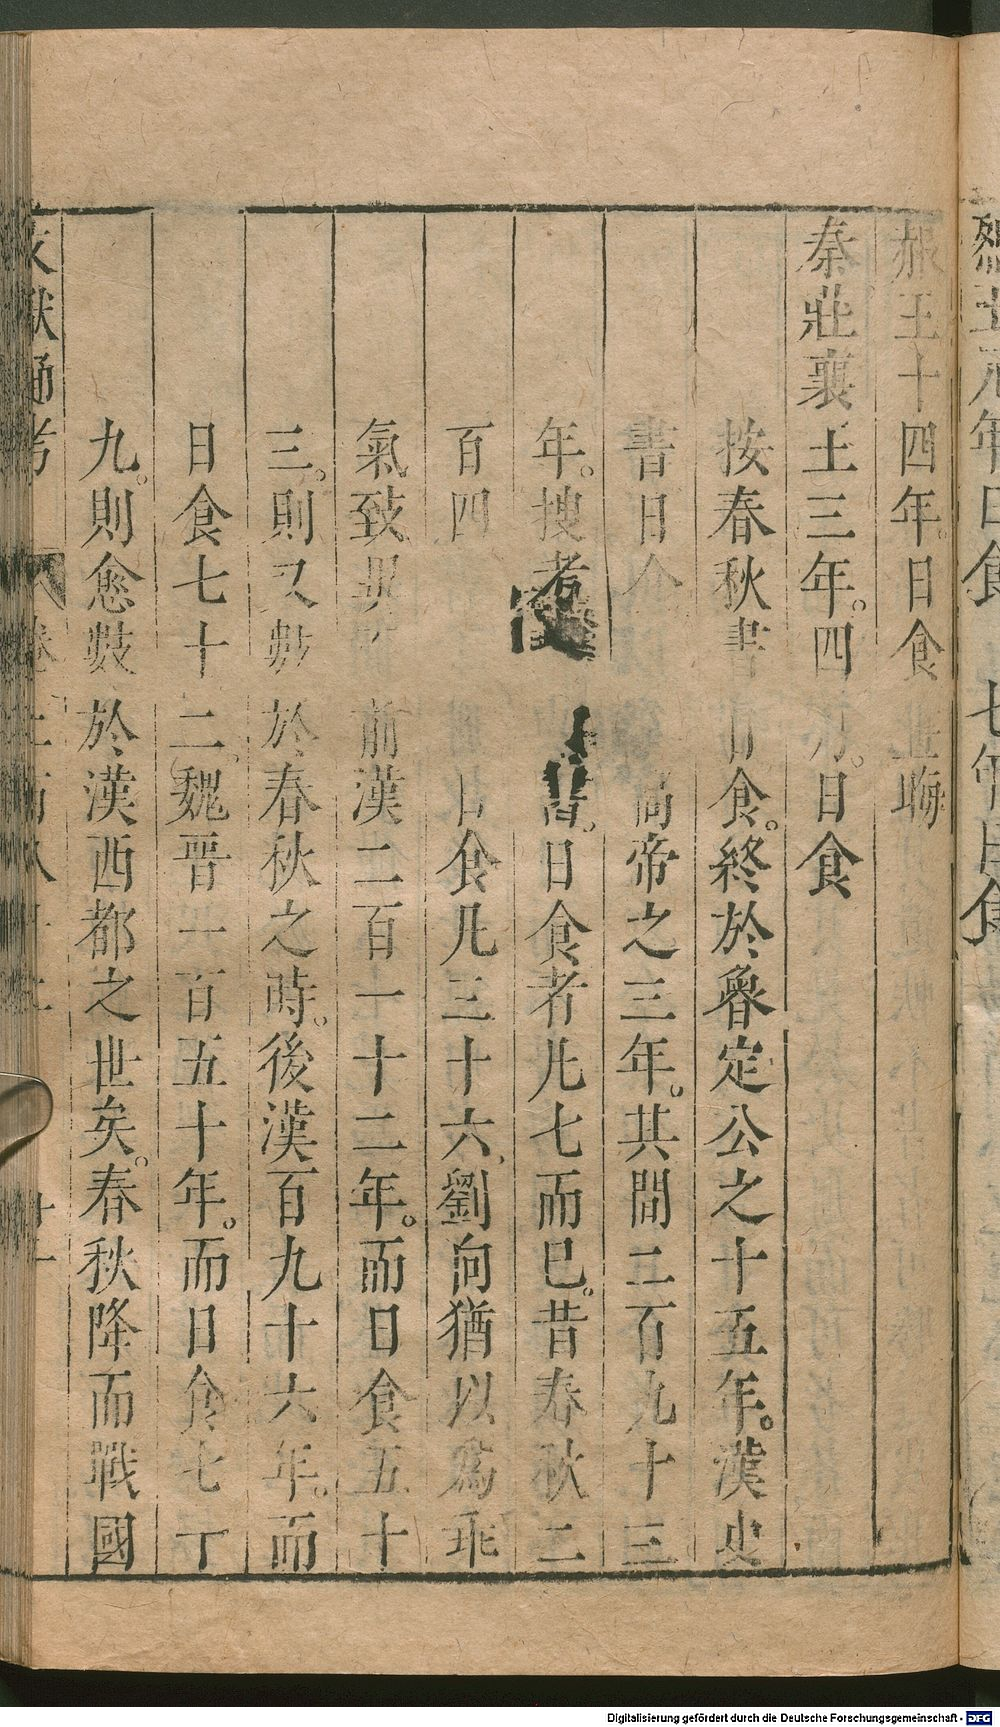 赧王十四年日食晦
秦莊襄王三年。四月。日食
按春秋書日食。終於魯定公之十五年。漢史
書日食高帝之三年。其間二百九十三
年。搜考書。日食者凡七而已。昔春秋二
百四日食凡三十六。劉向猶以爲乖
氣致前漢二百一十二年。而日食五十
三。則又數於春秋之時。後漢百九十六年。而
日食七十二。魏晋一百五十年。而日食七十
九。則愈數於漢西都之世矣。春秋降而戰國
文獻通考 卷二百八十二 十一
Digitalisierung gefördert durch die Deutsche Forschungsgemeinschaft - DFG